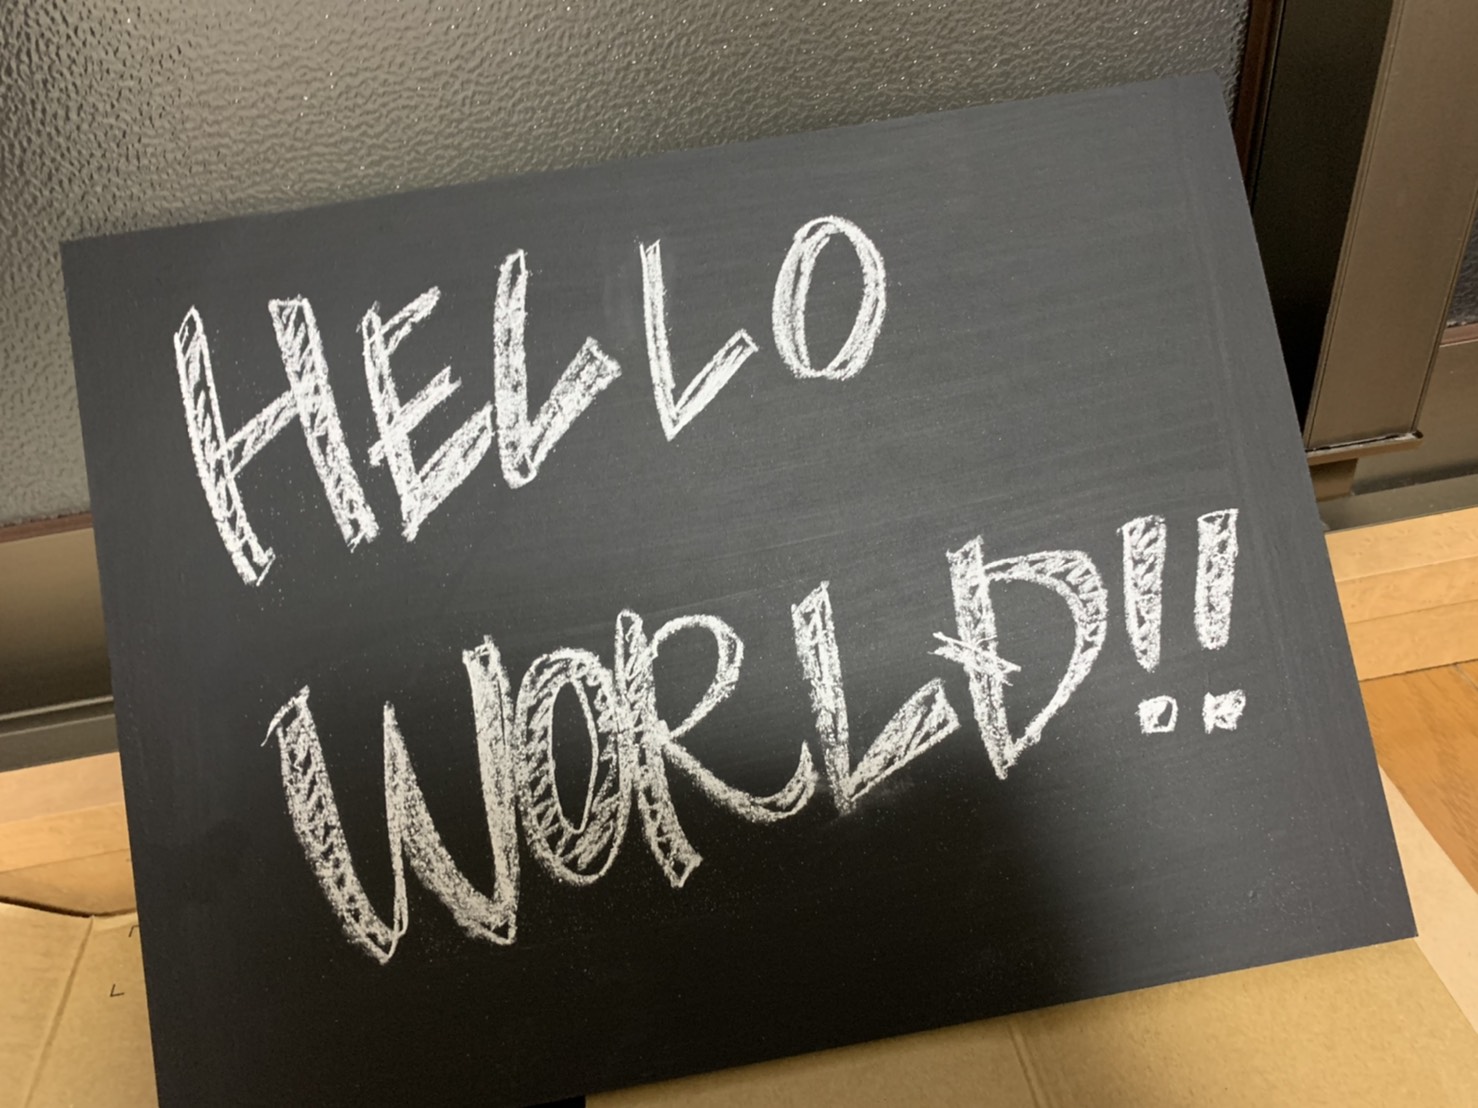 HELLO
WORLD!!